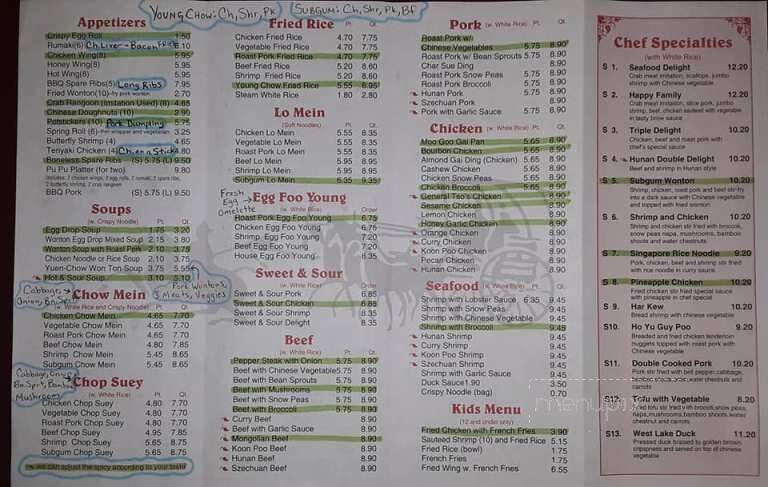 YOUNG CHOW: Ch, Shr, Pk
SUBGUM: Ch, Shr, Pk, Bf
Appetizers
Crispy Egg Roll 1.50
Rumaki(6) Ch. Liver + Bacon 8.10
Chicken Wing(8) 5.95
Honey Wing(8) 5.95
Hot Wing(8) 5.95
BBQ Spare Ribs(5) Long Ribs 7.95
Fried Wonton(10) 2.70
Crab Rangoon (Imitation Used) (8) 4.65
Chinese Doughnuts (10) 2.90
Potstickers (10) Pork Dumpling 5.75
Spring Roll (6) 3.25
Butterfly Shrimp (4) 4.65
Teriyaki Chicken (4) Chicken Stick 4.80
Boneless Spare Ribs (S) 5.75 (L) 9.50
Pu Pu Platter (for two) 9.80
BBQ Pork (S) 5.75 (L) 9.50
Soups
(w. Crispy Noodle) Pt. Qt.
Egg Drop Soup 1.75 3.20
Wonton Egg Drop Mixed Soup 2.15 3.80
Wonton Soup with Roast Pork 2.10 3.75
Chicken Noodle or Rice Soup 2.10 3.75
Yuen-Chow Won Ton Soup 3.75 5.55
Hot & Sour Soup 3.10 5.10
Pork Wontons, 3 Meats, Veggies
Cabbage, Onion, Bn. Sprts
Chow Mein
(w. White Rice and Crispy Noodle) Pt. Qt.
Chicken Chow Mein 4.65 7.70
Vegetable Chow Mein 4.65 7.70
Roast Pork Chow Mein 4.65 7.70
Beef Chow Mein 4.80 7.85
Shrimp Chow Mein 5.45 8.65
Subgum Chow Mein 5.45 8.65
Cabbage, Onion, Bn. Sprt, Bamboo, Mushrooms
Chop Suey
(w. White Rice) Pt. Qt.
Chicken Chop Suey 4.80 7.70
Vegetable Chop Suey 4.80 7.70
Roast Pork Chop Suey 4.80 7.70
Beef Chop Suey 4.95 7.85
Shrimp Chop Suey 5.65 8.75
Subgum Chop Suey 5.65 8.75
we can adjust the spicy according to your taste
Fried Rice
Pt. Qt.
Chicken Fried Rice 4.70 7.75
Vegetable Fried Rice 4.70 7.75
Roast Pork Fried Rice 4.70 7.75
Beef Fried Rice 5.20 8.60
Shrimp Fried Rice 5.20 8.60
Young Chow Fried Rice 5.55 8.95
Steam White Rice 1.80 2.80
Lo Mein
(Soft Noodles) Pt. Qt.
Chicken Lo Mein 5.55 8.35
Vegetable Lo Mein 5.55 8.35
Roast Pork Lo Mein 5.55 8.35
Beef Lo Mein 5.95 8.95
Shrimp Lo Mein 5.95 8.95
Subgum Lo Mein 6.35 9.35
Fresh Egg Omelette
Egg Foo Young
(w. White Rice) Order
Roast Pork Egg Foo Young 6.75
Chicken Egg Foo Young 6.75
Shrimp Egg Foo Young 7.20
Beef Egg Foo Young 7.20
House Egg Foo Young 8.35
Sweet & Sour
(w. White Rice) Order
Sweet & Sour Pork 6.85
Sweet & Sour Chicken 6.85
Sweet & Sour Shrimp 8.35
Sweet & Sour Delight 8.35
Beef
(w. White Rice) Pt. Qt.
Pepper Steak with Onion 5.75 8.90
Beef with Chinese Vegetables 5.75 8.90
Beef with Bean Sprouts 5.75 8.90
Beef with Mushrooms 5.75 8.90
Beef with Snow Peas 5.75 8.90
Beef with Broccoli 5.75 8.90
Curry Beef 8.90
Beef with Garlic Sauce 8.90
Mongolian Beef 8.90
Koon Poo Beef 8.90
Hunan Beef 8.90
Szechuan Beef 8.90
Pork (w. White Rice) Pt. Qt.
Roast Pork w/
Chinese Vegetables 5.75 8.90
Roast Pork w/ Bean Sprouts 5.75 8.90
Char Sue Ding 5.75 8.90
Roast Pork Snow Peas 5.75 8.90
Roast Pork Broccoli 5.75 8.90
Hunan Pork 5.75 8.90
Szechuan Pork 5.75 8.90
Pork with Garlic Sauce 5.75 8.90
Chicken (w. White Rice) Pt. Qt.
Moo Goo Gai Pan 5.65 8.90
Bourbon Chicken 5.65 8.90
Almond Gai Ding (Chicken) 5.65 8.90
Cashew Chicken 5.65 8.90
Chicken Snow Peas 5.65 8.90
Chicken Broccoli 5.65 8.90
General Tso's Chicken 8.90
Sesame Chicken 8.90
Lemon Chicken 8.90
Honey Garlic Chicken 8.90
Orange Chicken 8.90
Curry Chicken 8.90
Koon Poo Chicken 8.90
Pecan Chicken 8.90
Hunan Chicken 8.90
Seafood (w. White Rice) Pt. Qt.
Shrimp with Lobster Sauce 6.35 9.45
Shrimp with Snow Peas 9.45
Shrimp with Chinese Vegetable 9.45
Shrimp with Broccoli 9.45
Hunan Shrimp 9.45
Curry Shrimp 9.45
Koon Poo Shrimp 9.45
Szechuan Shrimp 9.45
Shrimp with Garlic Sauce 9.45
Duck Sauce 1.90 3.50
Crispy Noodle (bag) 0.70
Kids Menu
(12 and under only)
Fried Chicken with French Fries 3.90
Sauteed Shrimp (10) and Fried Rice 5.15
Fried Rice (bowl) 1.75
French Fries 1.75
Fried Wing w. French Fries 6.55
Chef Specialties
(with White Rice)
S 1. Seafood Delight 12.20
Crab meat imitation, scallops, jumbo shrimp with Chinese vegetable
S 2. Happy Family 12.20
Crab meat imitation, slice pork, jumbo shrimp, beef, chicken sauteed with vegetable in tasty brow sauce
S 3. Triple Delight 10.20
Chicken, beef and roast pork with chef's special sauce
S 4. Hunan Double Delight 10.20
Beef and shrimp in Hunan style
S 5. Subgum Wonton 10.20
Shrimp, chicken, roast pork and beef stir-fry into a dark sauce with Chinese vegetable and topped with fried wonton
S 6. Shrimp and Chicken 10.20
Shrimp and chicken stir fried with broccoli, snow peas napa, mushrooms, bamboo shoots and water chestnuts
S 7. Singapore Rice Noodle 9.20
Pork, chicken, beef and shrimp stir fried with rice noodle in curry sauce
S 8. Pineapple Chicken 10.20
Fried chicken stir fried special sauce with pineapple in chef special
S 9. Har Kew 10.20
Bread shrimp with chinese vegetable
S10. Ho Yu Guy Poo 9.20
Breaded and fried chicken tenderloin nuggets topped with roast pork with Chinese vegetable
S11. Double Cooked Pork 10.20
Pork stir fried with bell pepper, cabbage, bamboo shoots, water chestnuts and carrots
S12. Tofu with Vegetable 8.20
Fried tofu stir fried with broccoli, snow peas, napa, mushrooms, bamboo shoots, water chestnut and carrots
S13. West Lake Duck 11.20
Pressed duck braised to golden brown crispness and served on top of chinese vegetable
menupix